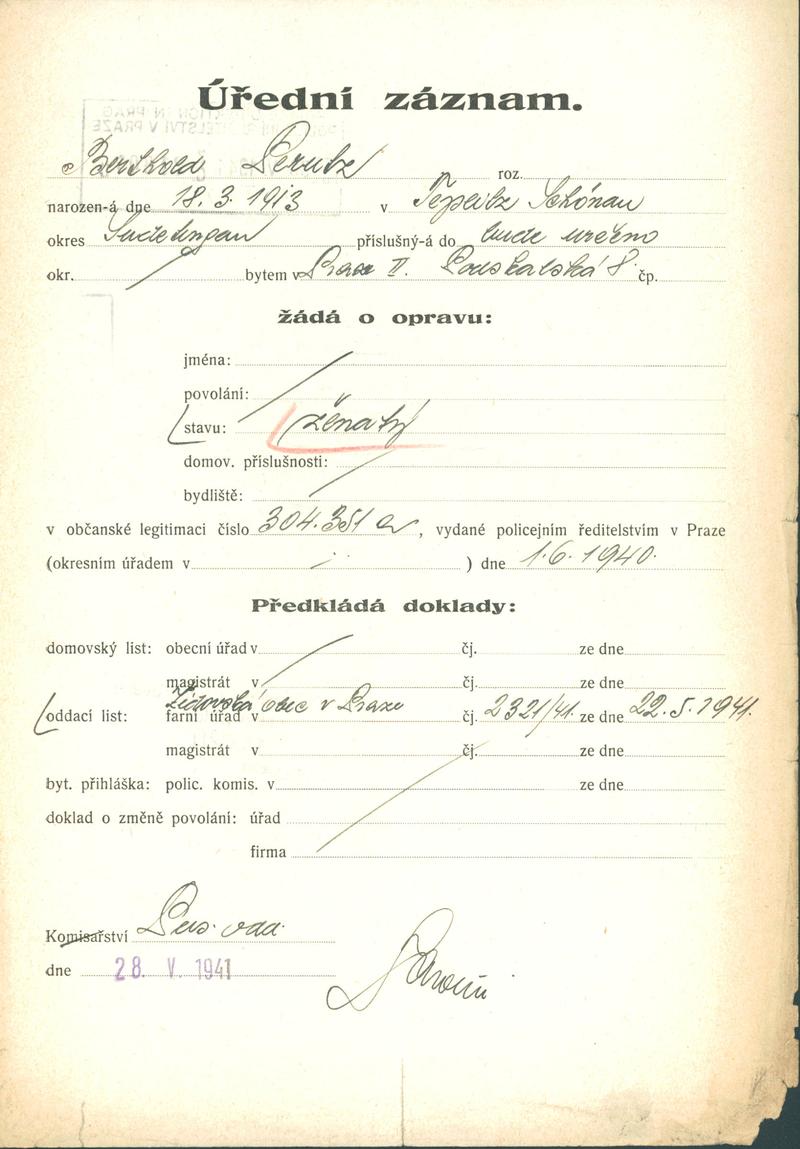 Úřední záznam.
Berthold Perutz roz.
narozen-á dne 18. 3. 1913 v Teplitz Schönau
okres Sudetengau příslušný-á do bude určeno
okr. bytem v Praze II. 8. čp.
žádá o opravu:
jména:
povolání:
stavu: ženatý
domov. příslušnosti:
bydliště:
v občanské legitimaci číslo 304.351 , vydané policejním ředitelstvím v Praze
(okresním úřadem v ) dne 1.6.1940.
Předkládá doklady:
domovský list: obecní úřad v čj. ze dne
magistrát v čj. ze dne
Židovská obec v Praze
oddací list: farní úřad v čj. 2321/41. ze dne 22.5.1941.
magistrát v čj. ze dne
byt. přihláška: polic. komis. v ze dne
doklad o změně povolání: úřad
firma
Komisařství
dne 28. V. 1941